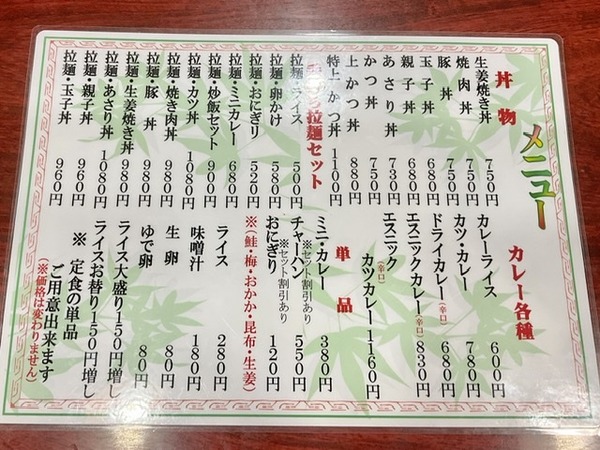 メニュー
丼物
生姜焼き丼 750円
焼肉丼 750円
豚丼 750円
玉子丼 680円
親子丼 680円
あさり丼 730円
かつ丼 750円
上かつ丼 880円
特上かつ丼 1100円
拉麺セット
拉麺・ライス 500円
拉麺・卵かけ 580円
拉麺・おにぎり 520円
拉麺・ミニカレー 680円
拉麺・炒飯セット 900円
拉麺・カツ丼 1080円
拉麺・焼き肉丼 980円
拉麺・豚丼 980円
拉麺・生姜焼き丼 980円
拉麺・あさり丼 1080円
拉麺・親子丼 960円
拉麺・玉子丼 960円
カレー各種
カレーライス 600円
カツ・カレー 780円
ドライカレー(辛口) 680円
エスニックカレー(辛口) 830円
エスニック(辛口)
カツカレー 1160円
単品
ミニ・カレー 380円
※セット割引あり
チャーハン 550円
※セット割引あり
おにぎり 120円
※(鮭・梅・おかか・昆布・生姜)
ライス 280円
味噌汁 180円
生卵 80円
ゆで卵 80円
ライス大盛り150円増し
ライスお替り150円増し
※ 定食の単品
ご用意出来ます
(※価格は変わりません)